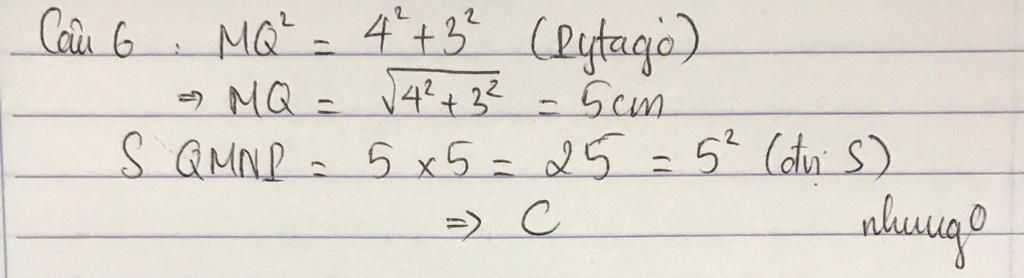 Câu 6 : MQ² = 4² + 3² (Pytago)
⇒ MQ = √(4² + 3²) = 5cm
S QMNP = 5 × 5 = 25 = 5² (đvi S)
⇒ C nhuugO